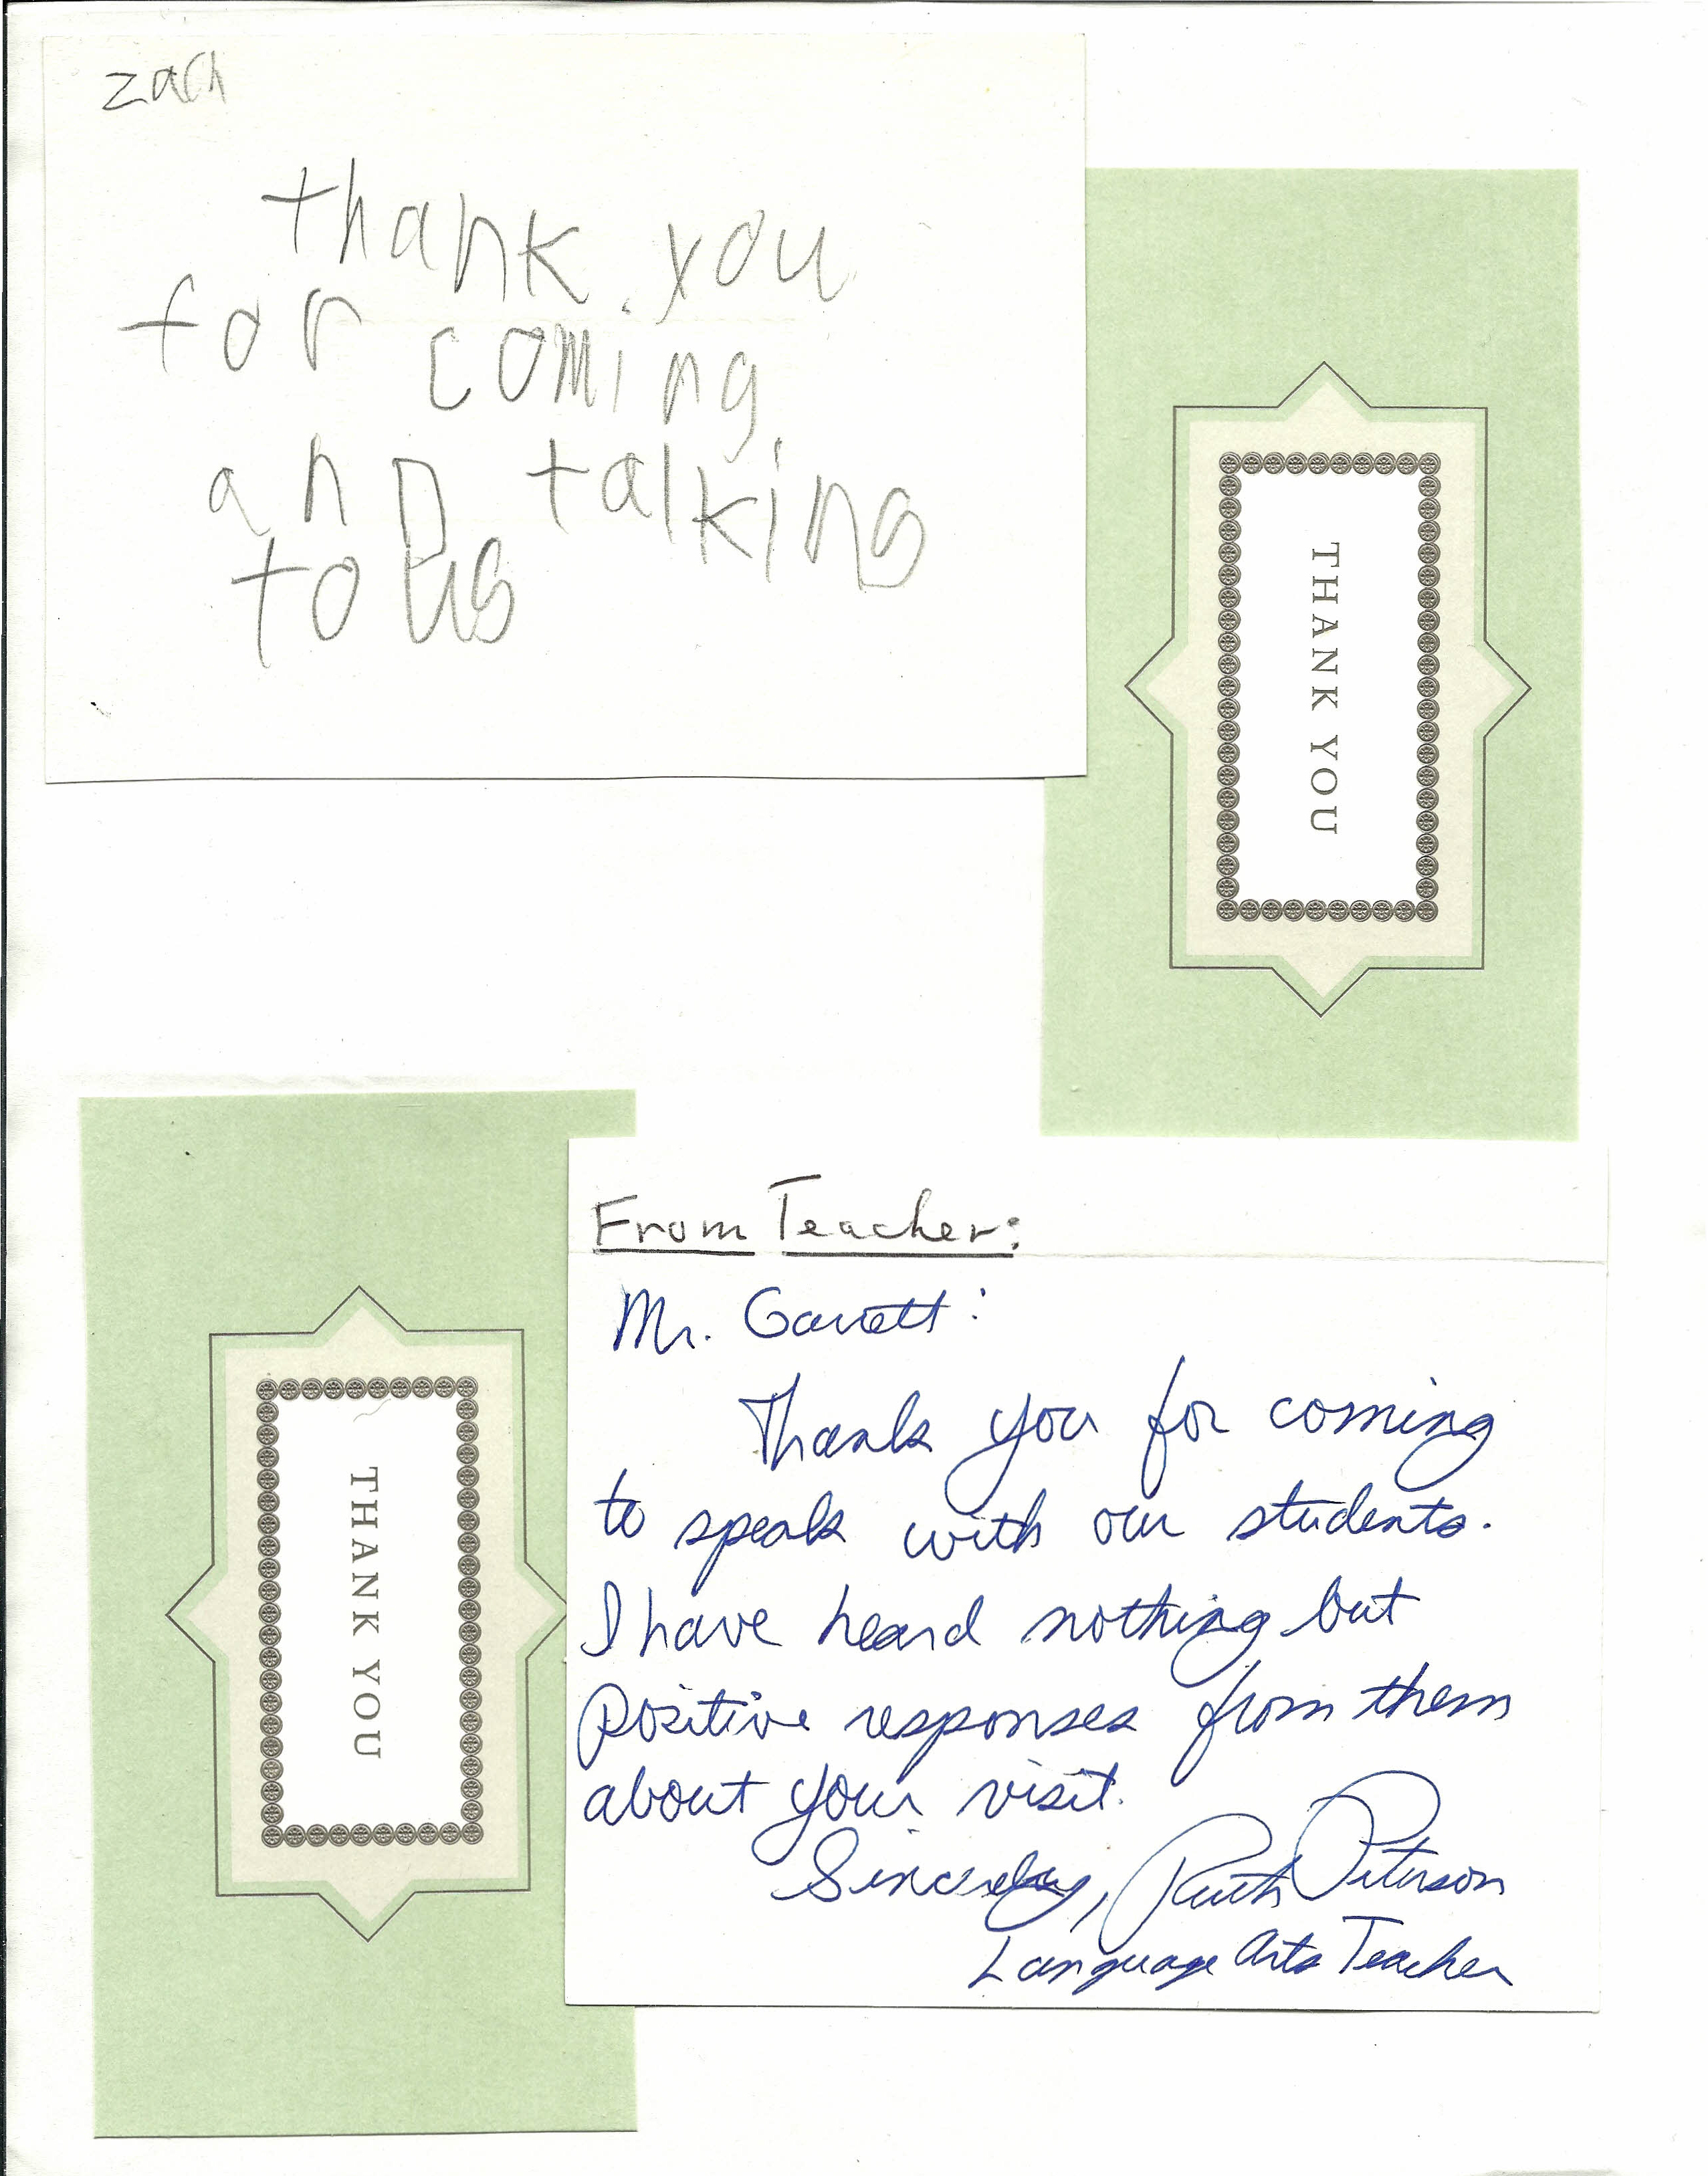 zach
thank you
for coming
and talking
to us
THANK YOU
THANK YOU
From Teacher:
Mr. Garrett:
Thank you for coming
to speak with our students.
I have heard nothing but
positive responses from them
about your visit.
Sincerely, Ruth Peterson
Language Arts Teacher